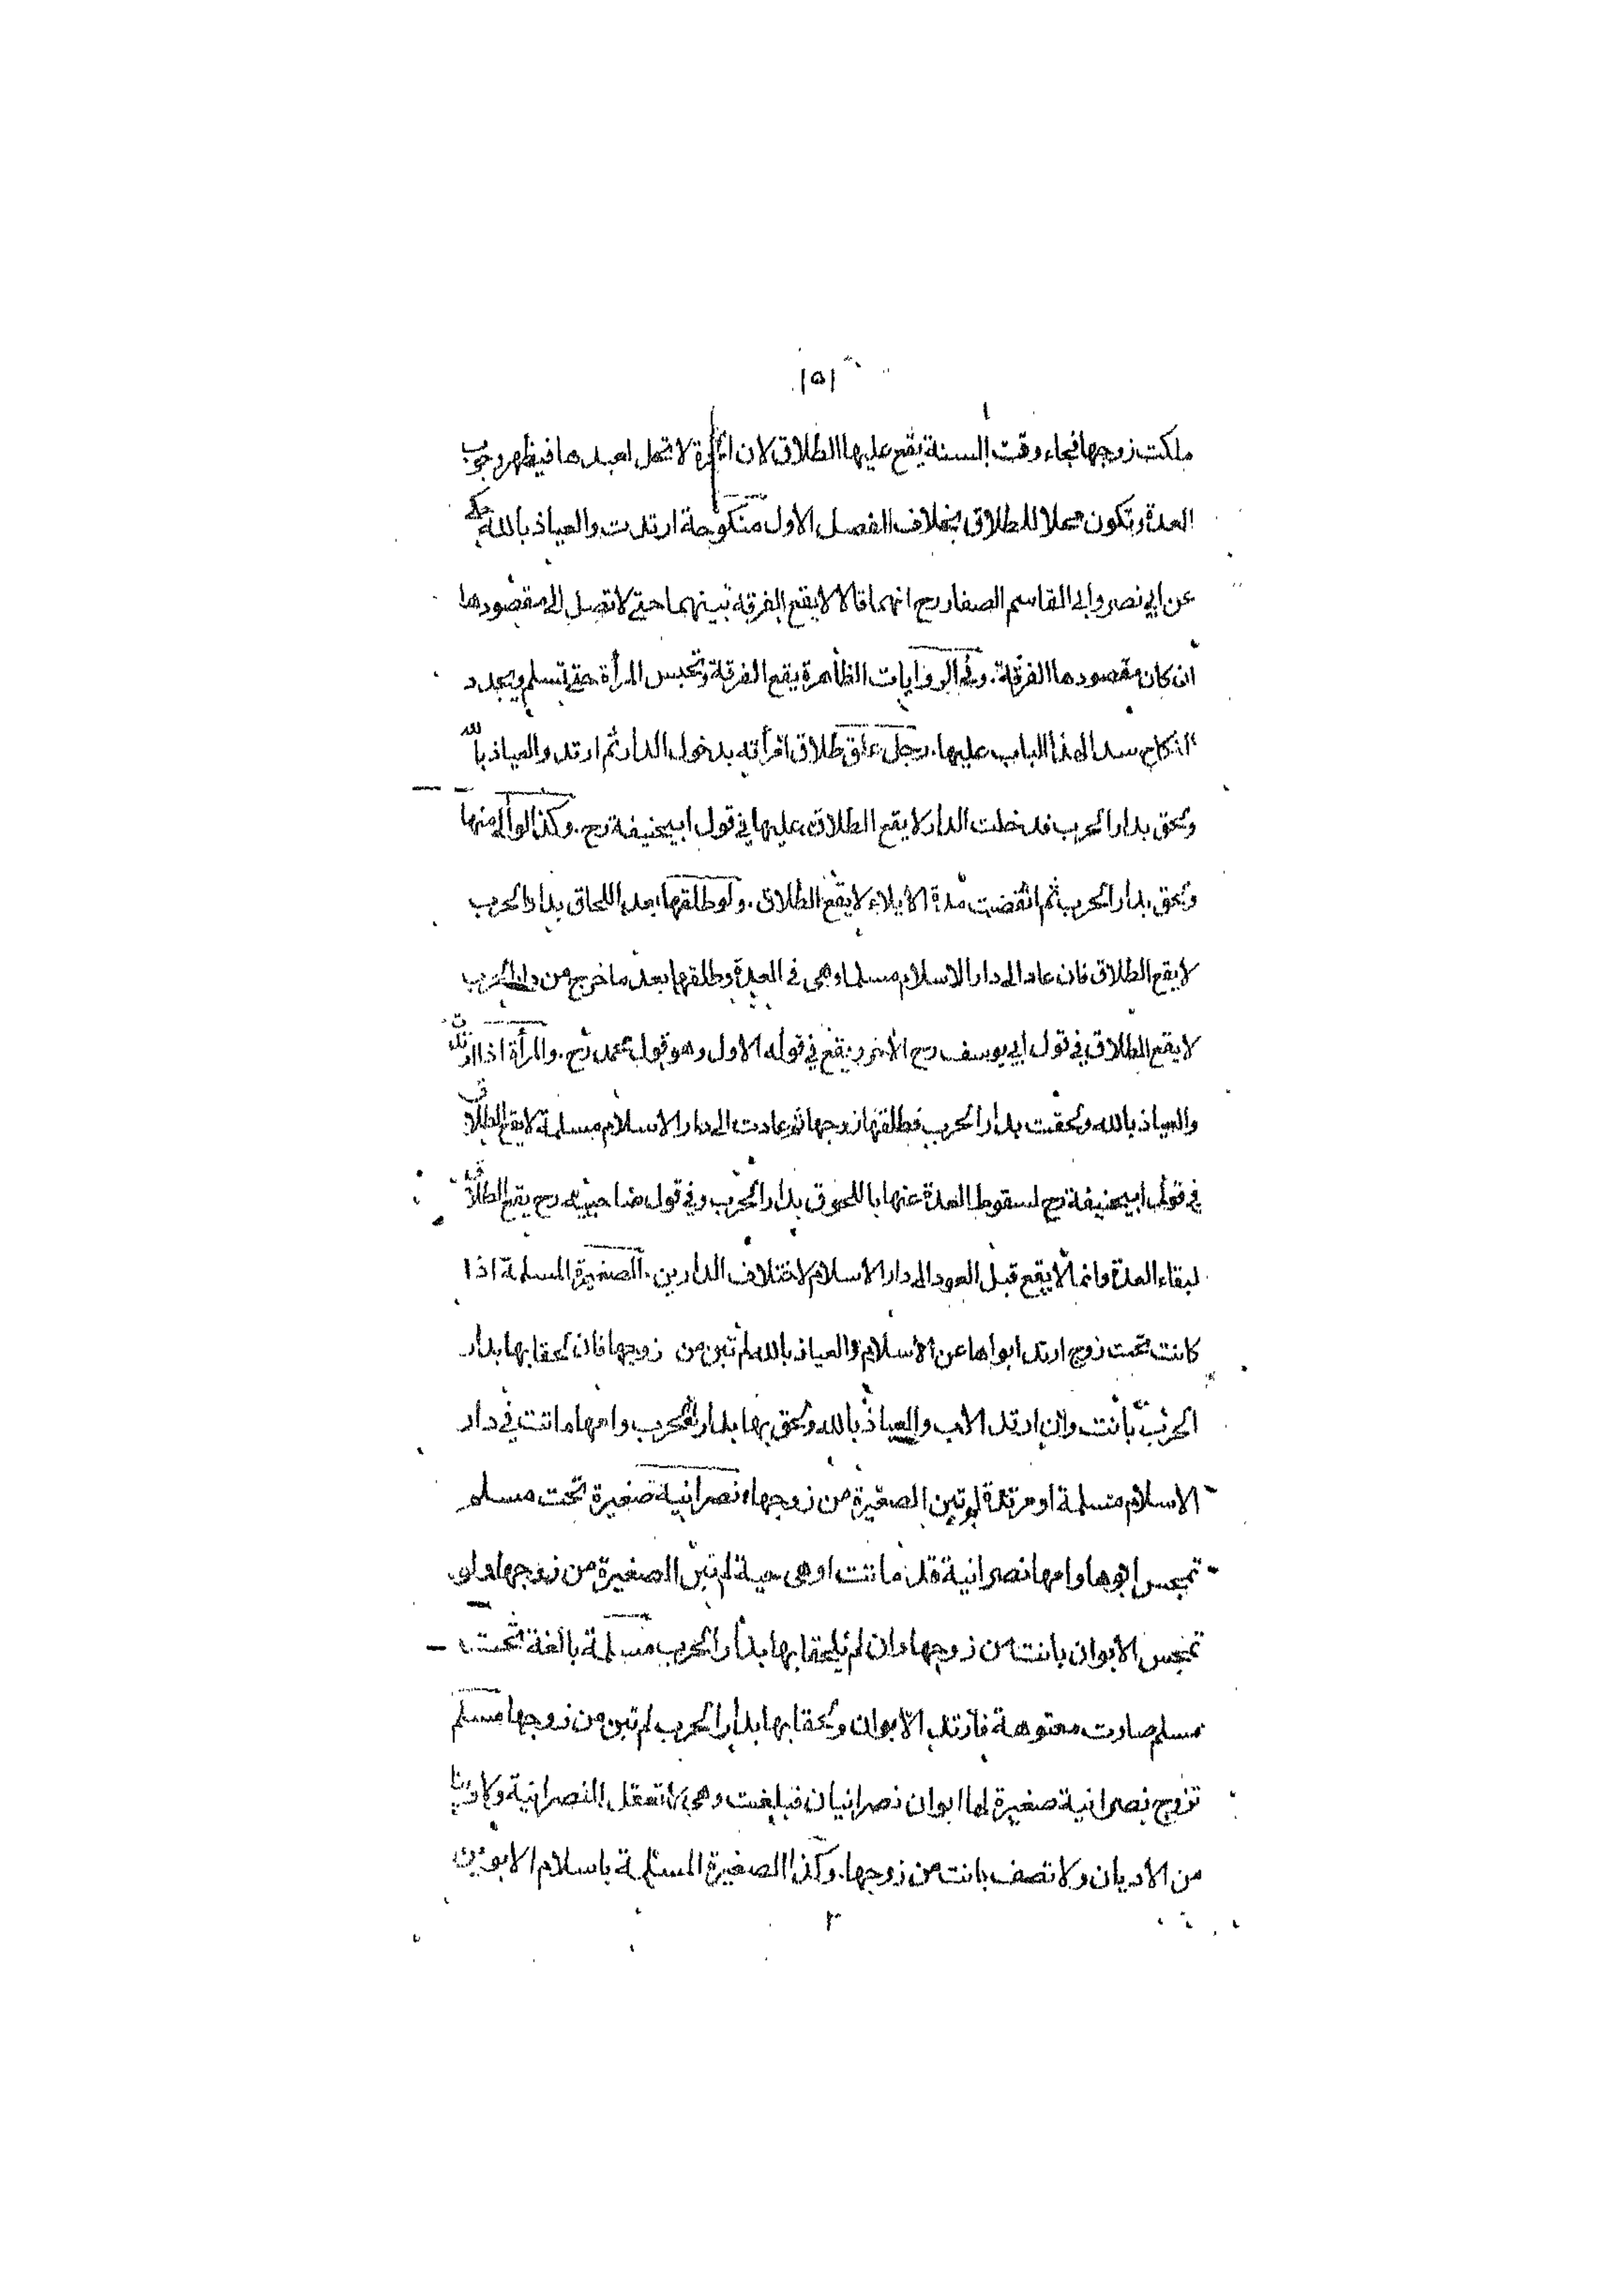 ١٥١
ملكت زوجها فجاء وقت السنة يقع عليها الطلاق لان الحرة لا تحل لعبدها فيظهر وجوب
العدة وتكون محلا للطلاق بخلاف الفصل الاول منكوحة ارتدت والعياذ بالله حكي
عن ابي نصر وابي القاسم الصفار رح انهما قالا لا يقع الفرقة بينهما حتى لا تصل الى مقصودها
ان كان مقصودها الفرقة. وفي الروايات الظاهرة يقع الفرقة وتحبس المرأة حتى تسلم ويجدد
النكاح سدا لهذا الباب عليها. رجل علق طلاق امرأته بدخول الدار ثم ارتد والعياذ بالله
ولحق بدار الحرب فدخلت الدار لا يقع الطلاق عليها في قول ابيحنيفة رح. وكذا لو آلى منها
ولحق بدار الحرب ثم انقضت مدة الايلاء لا يقع الطلاق. ولو طلقها بعد اللحاق بدار الحرب
لا يقع الطلاق فان عاد الى دار الاسلام مسلما وهي في العدة وطلقها بعد ما خرج من دار الحرب
لا يقع الطلاق في قول ابي يوسف رح الآخر ويقع في قوله الاول وهو قول محمد رح. والمرأة اذا ارتدت
والعياذ بالله ولحقت بدار الحرب فطلقها زوجها ثم عادت الى دار الاسلام مسلمة لا يقع الطلاق
في قول ابيحنيفة رح لسقوط العدة عنها باللحوق بدار الحرب وفي قول صاحبيه رح يقع الطلاق
لبقاء العدة وانما لا يقع قبل العود الى دار الاسلام لاختلاف الدارين. الصغيرة المسلمة اذا
كانت تحت زوج ارتد ابواها عن الاسلام والعياذ بالله لم تبن من زوجها فان لحقا بها بدار
الحرب بانت وان ارتد الاب والعياذ بالله ولحق بها بدار الحرب وامها ماتت في دار
الاسلام مسلمة او مرتدة لم تبن الصغيرة من زوجها. نصرانية صغيرة تحت مسلم
تمجس ابوها وامها نصرانية قد ماتت او هي حية لم تبن الصغيرة من زوجها ولو
تمجس الابوان بانت من زوجها وان لم يلحقا بها بدار الحرب مسلمة بالغة تحت
مسلم صارت معتوهة فارتد الابوان ولحقا بها بدار الحرب لم تبن من زوجها مسلم
تزوج نصرانية صغيرة لها ابوان نصرانيان فبلغت وهي لا تعقل النصرانية ولا دينا
من الاديان ولا تصف بانت من زوجها. وكذا الصغيرة المسلمة باسلام الابوين